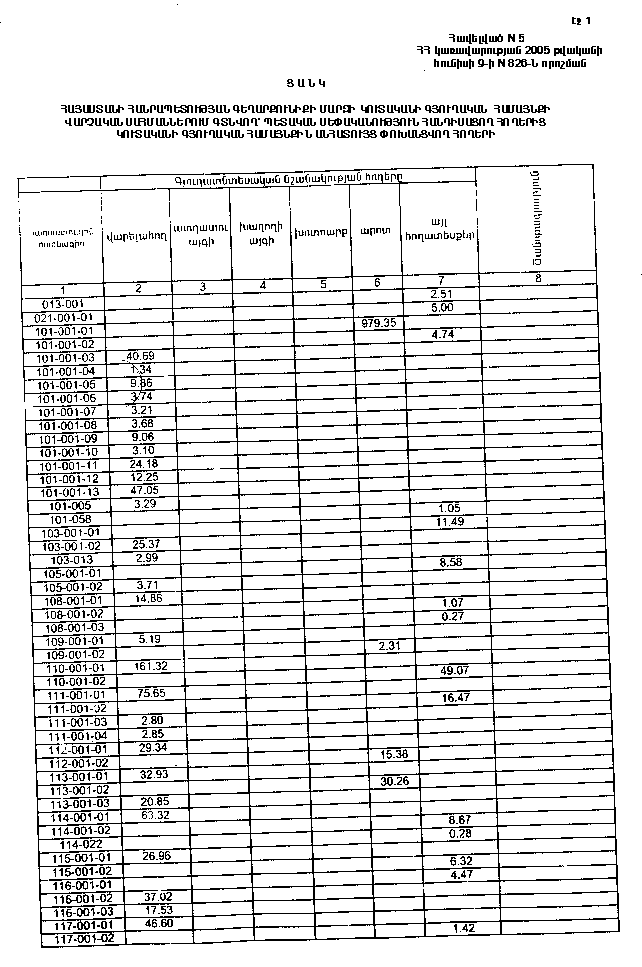 Էջ 1
Հավելված N 5
ՀՀ կառավարության 2005 թվականի
հունիսի 9-ի N 826-Ն որոշման
Ց Ա Ն Կ
ՀԱՅԱՍՏԱՆԻ ՀԱՆՐԱՊԵՏՈՒԹՅԱՆ ԳԵՂԱՐՔՈՒՆԻՔԻ ՄԱՐԶԻ ԿՈՒՏԱԿԱՆԻ ԳՅՈՒՂԱԿԱՆ ՀԱՄԱՅՆՔԻ
ՎԱՐՉԱԿԱՆ ՍԱՀՄԱՆՆԵՐՈՒՄ ԳՏՆՎՈՂ՝ ՊԵՏԱԿԱՆ ՍԵՓԱԿԱՆՈՒԹՅՈՒՆ ՀԱՆԴԻՍԱՑՈՂ ՀՈՂԵՐԻՑ
ԿՈՒՏԱԿԱՆԻ ԳՅՈՒՂԱԿԱՆ ՀԱՄԱՅՆՔԻՆ ԱՆՀԱՏՈՒՅՑ ՓՈԽԱՆՑՎՈՂ ՀՈՂԵՐԻ
Գյուղատնտեսական նշանակության հողերը
վարելահող պտղատու այգի խաղողի այգի խոտհարք արոտ այլ հողատեսքեր Ծանոթագրություն
1 2 3 4 5 6 7 8
013-001 2.51
021-001-01 5.00
101-001-01 979.35
101-001-02 4.74
101-001-03 40.69
101-001-04 1.34
101-001-05 9.86
101-001-06 3.74
101-001-07 3.21
101-001-08 3.68
101-001-09 9.06
101-001-10 3.10
101-001-11 24.18
101-001-12 12.25
101-001-13 47.05
101-005 3.29
101-058 1.05
103-001-01 11.49
103-001-02 25.37
103-013 2.99
105-001-01 8.58
105-001-02 3.71
108-001-01 14.86
108-001-02 1.07
108-001-03 0.27
109-001-01 5.19
109-001-02 2.31
110-001-01 161.32
110-001-02 49.07
111-001-01 75.65
111-001-02 16.47
111-001-03 2.80
111-001-04 2.85
112-001-01 29.34
112-001-02 15.38
113-001-01 32.93
113-001-02 30.26
113-001-03 20.85
114-001-01 63.32
114-001-02 8.67
114-022 0.28
115-001-01 26.96
115-001-02 6.32
116-001-01 4.47
116-001-02 37.02
116-001-03 17.53
117-001-01 46.60
117-001-02 1.42